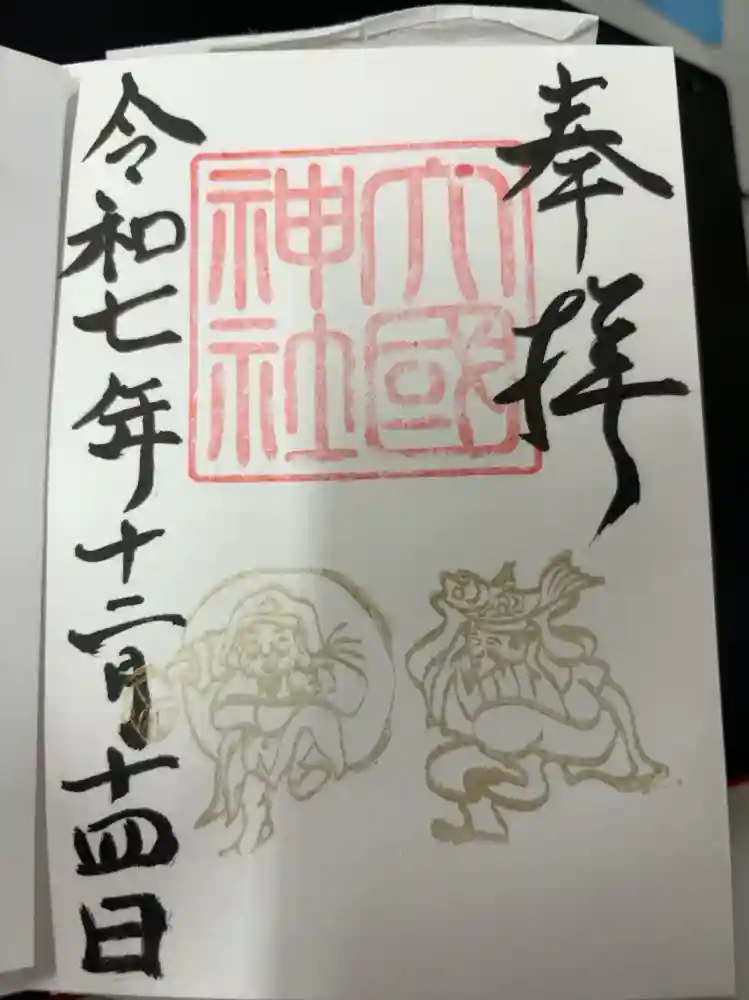 奉拝
大國
神社
令和七年十二月十四日